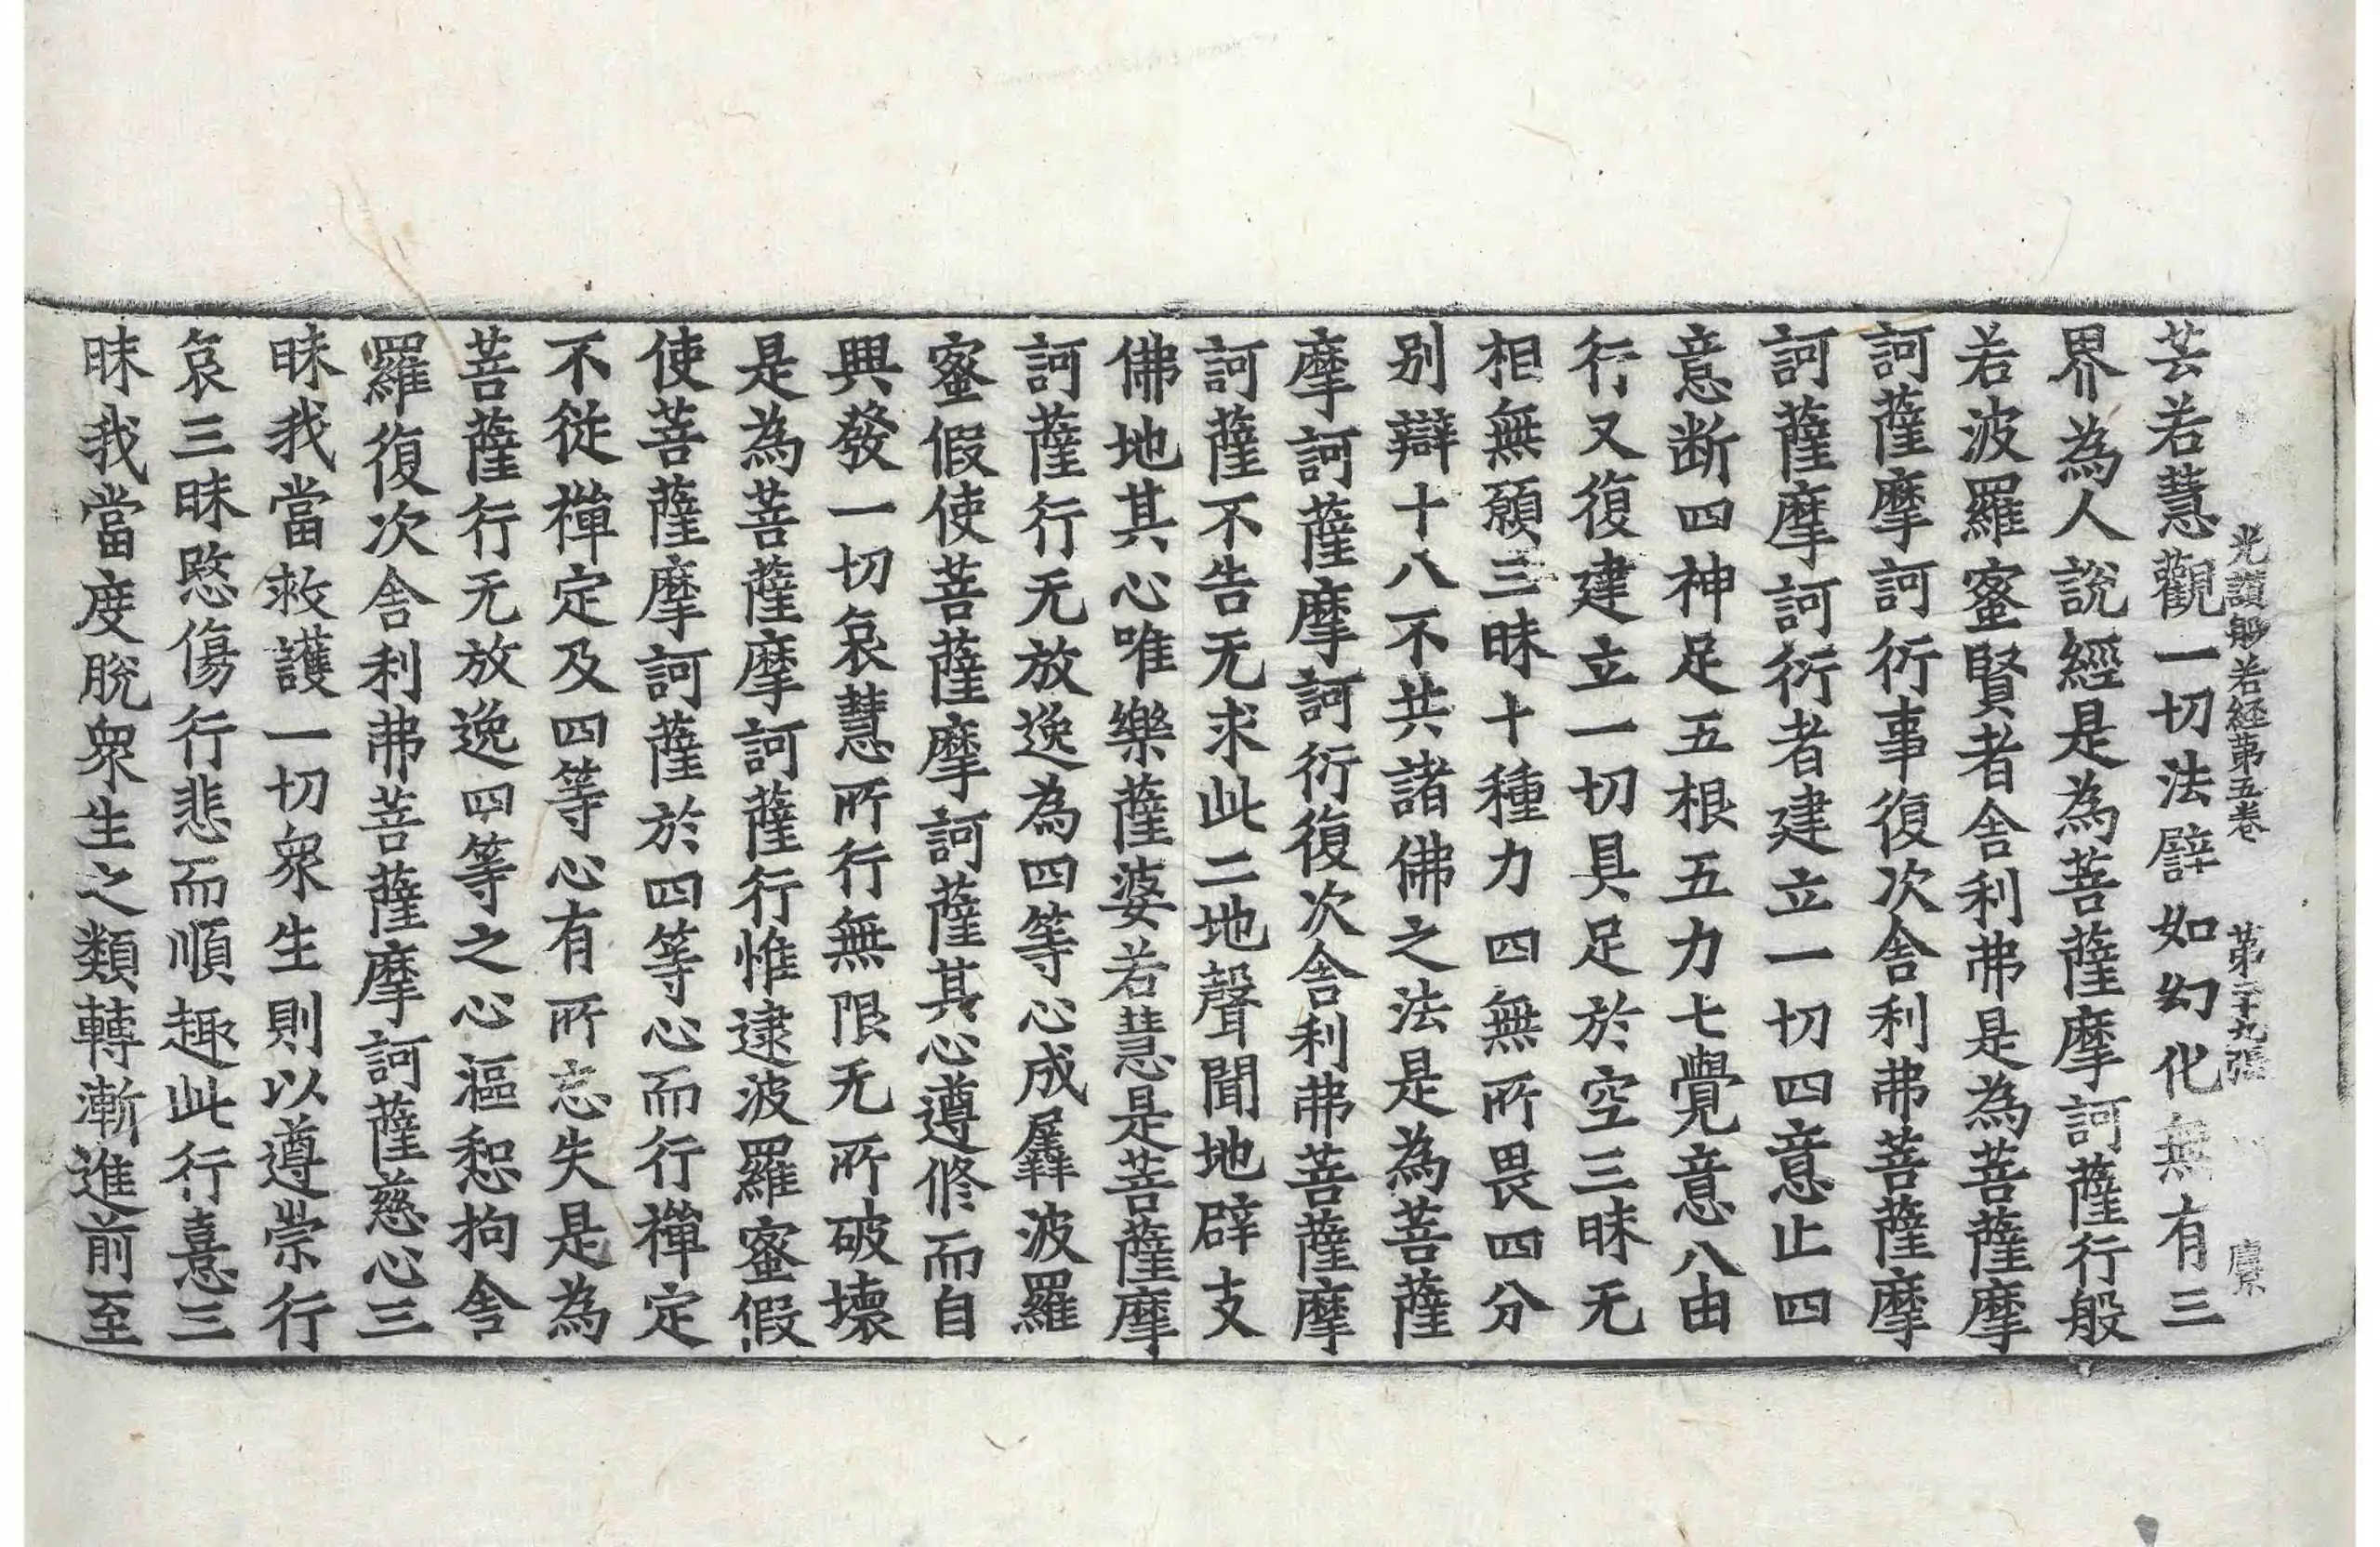 光讚般若経第五巻 第二十九張
芸若慧觀一切法譬如幻化無有三
界為人說經是為菩薩摩訶薩行般
若波羅蜜賢者舎利弗是為菩薩摩
訶薩摩訶衍事復次舎利弗菩薩摩
訶薩摩訶衍者建立一切四意止四
意断四神足五根五力七覺意八由
行又復建立一切具足於空三昧无
相無願三昧十種力四無所畏四分
別辯十八不共諸佛之法是為菩薩
摩訶薩摩訶衍復次舎利弗菩薩摩
訶薩不告无求此二地聲聞地辟支
佛地其心唯樂薩婆若慧是菩薩摩
訶薩行无放逸為四等心成羼波羅
蜜假使菩薩摩訶薩其心遵修而自
興發一切哀慧所行無限无所破壊
是為菩薩摩訶薩行惟逮波羅蜜假
使菩薩摩訶薩於四等心而行禪定
不從禪定及四等心有所忘失是為
菩薩行无放逸四等之心漚惒拘舎
羅復次舎利弗菩薩摩訶薩慈心三
昧我當救護一切衆生則以遵崇行
哀三昧愍傷行悲而順趣此行憙三
昧我當度脫衆生之類轉漸進前至